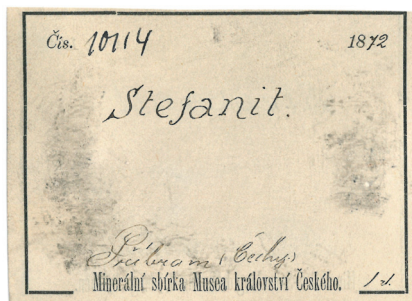 Čís. 10114 1872
Stefanit.
Příbram (Čechy)
Minerální sbírka Musea království Českého.